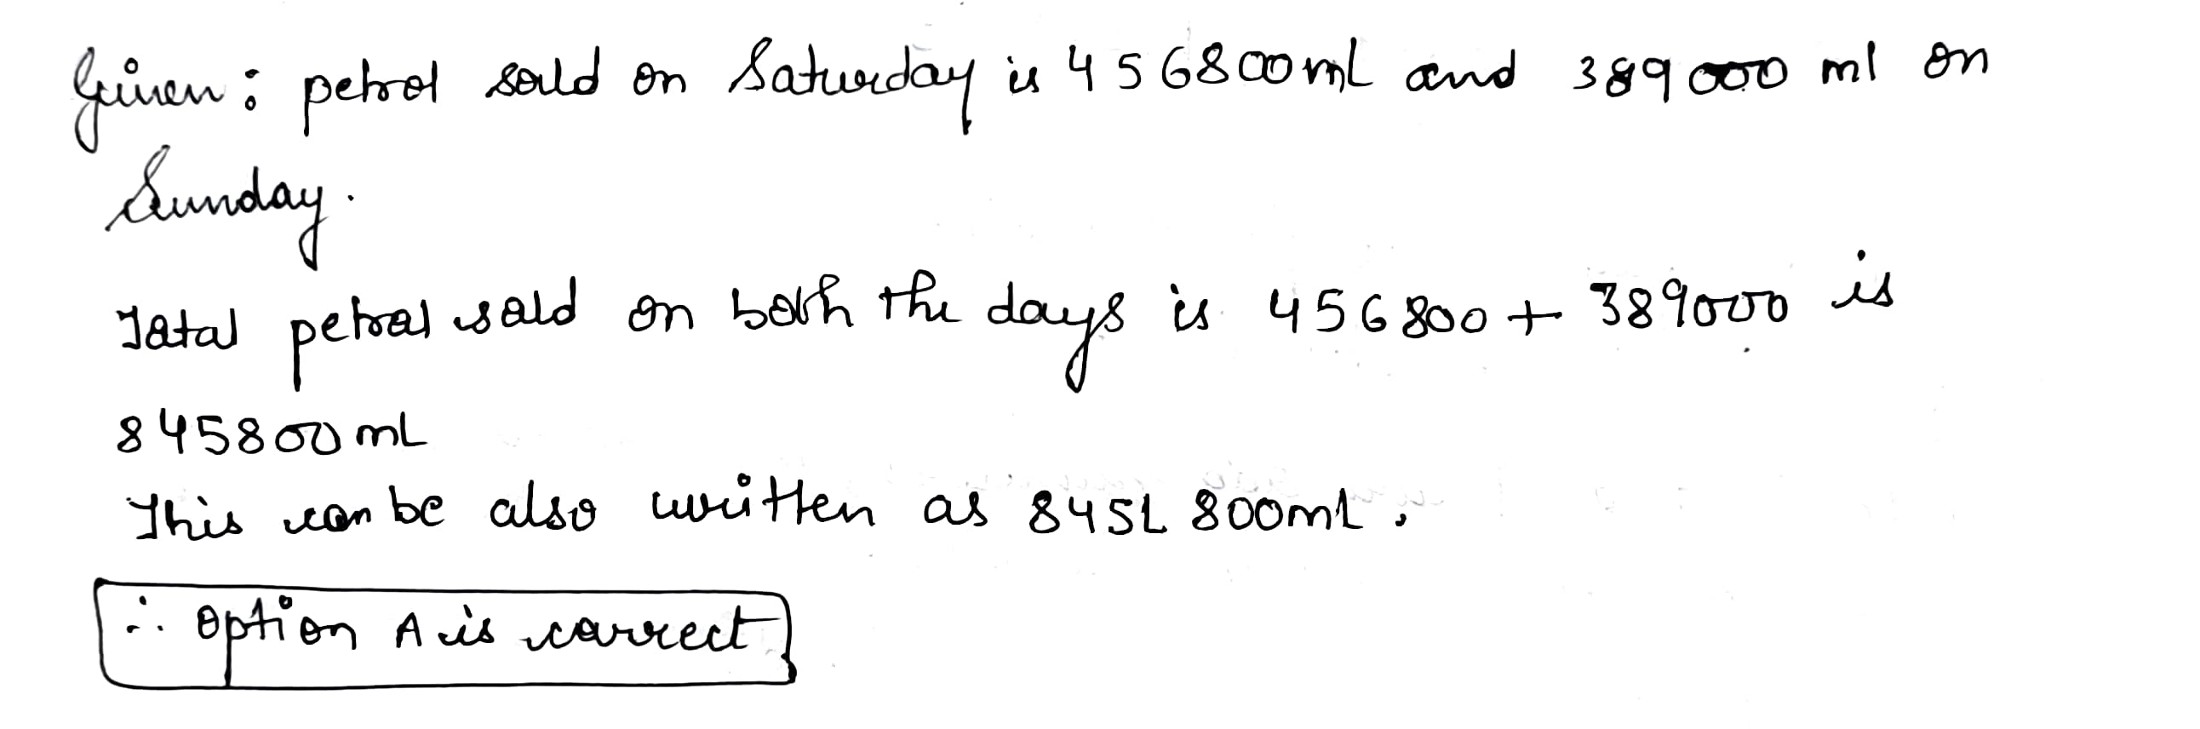 Given: petrol sold on Saturday is 456800mL and 389000 ml on
Sunday.
Total petrol sold on both the days is 456800 + 389000 is
845800mL
This can be also written as 845L 800mL.
∴ option A is correct